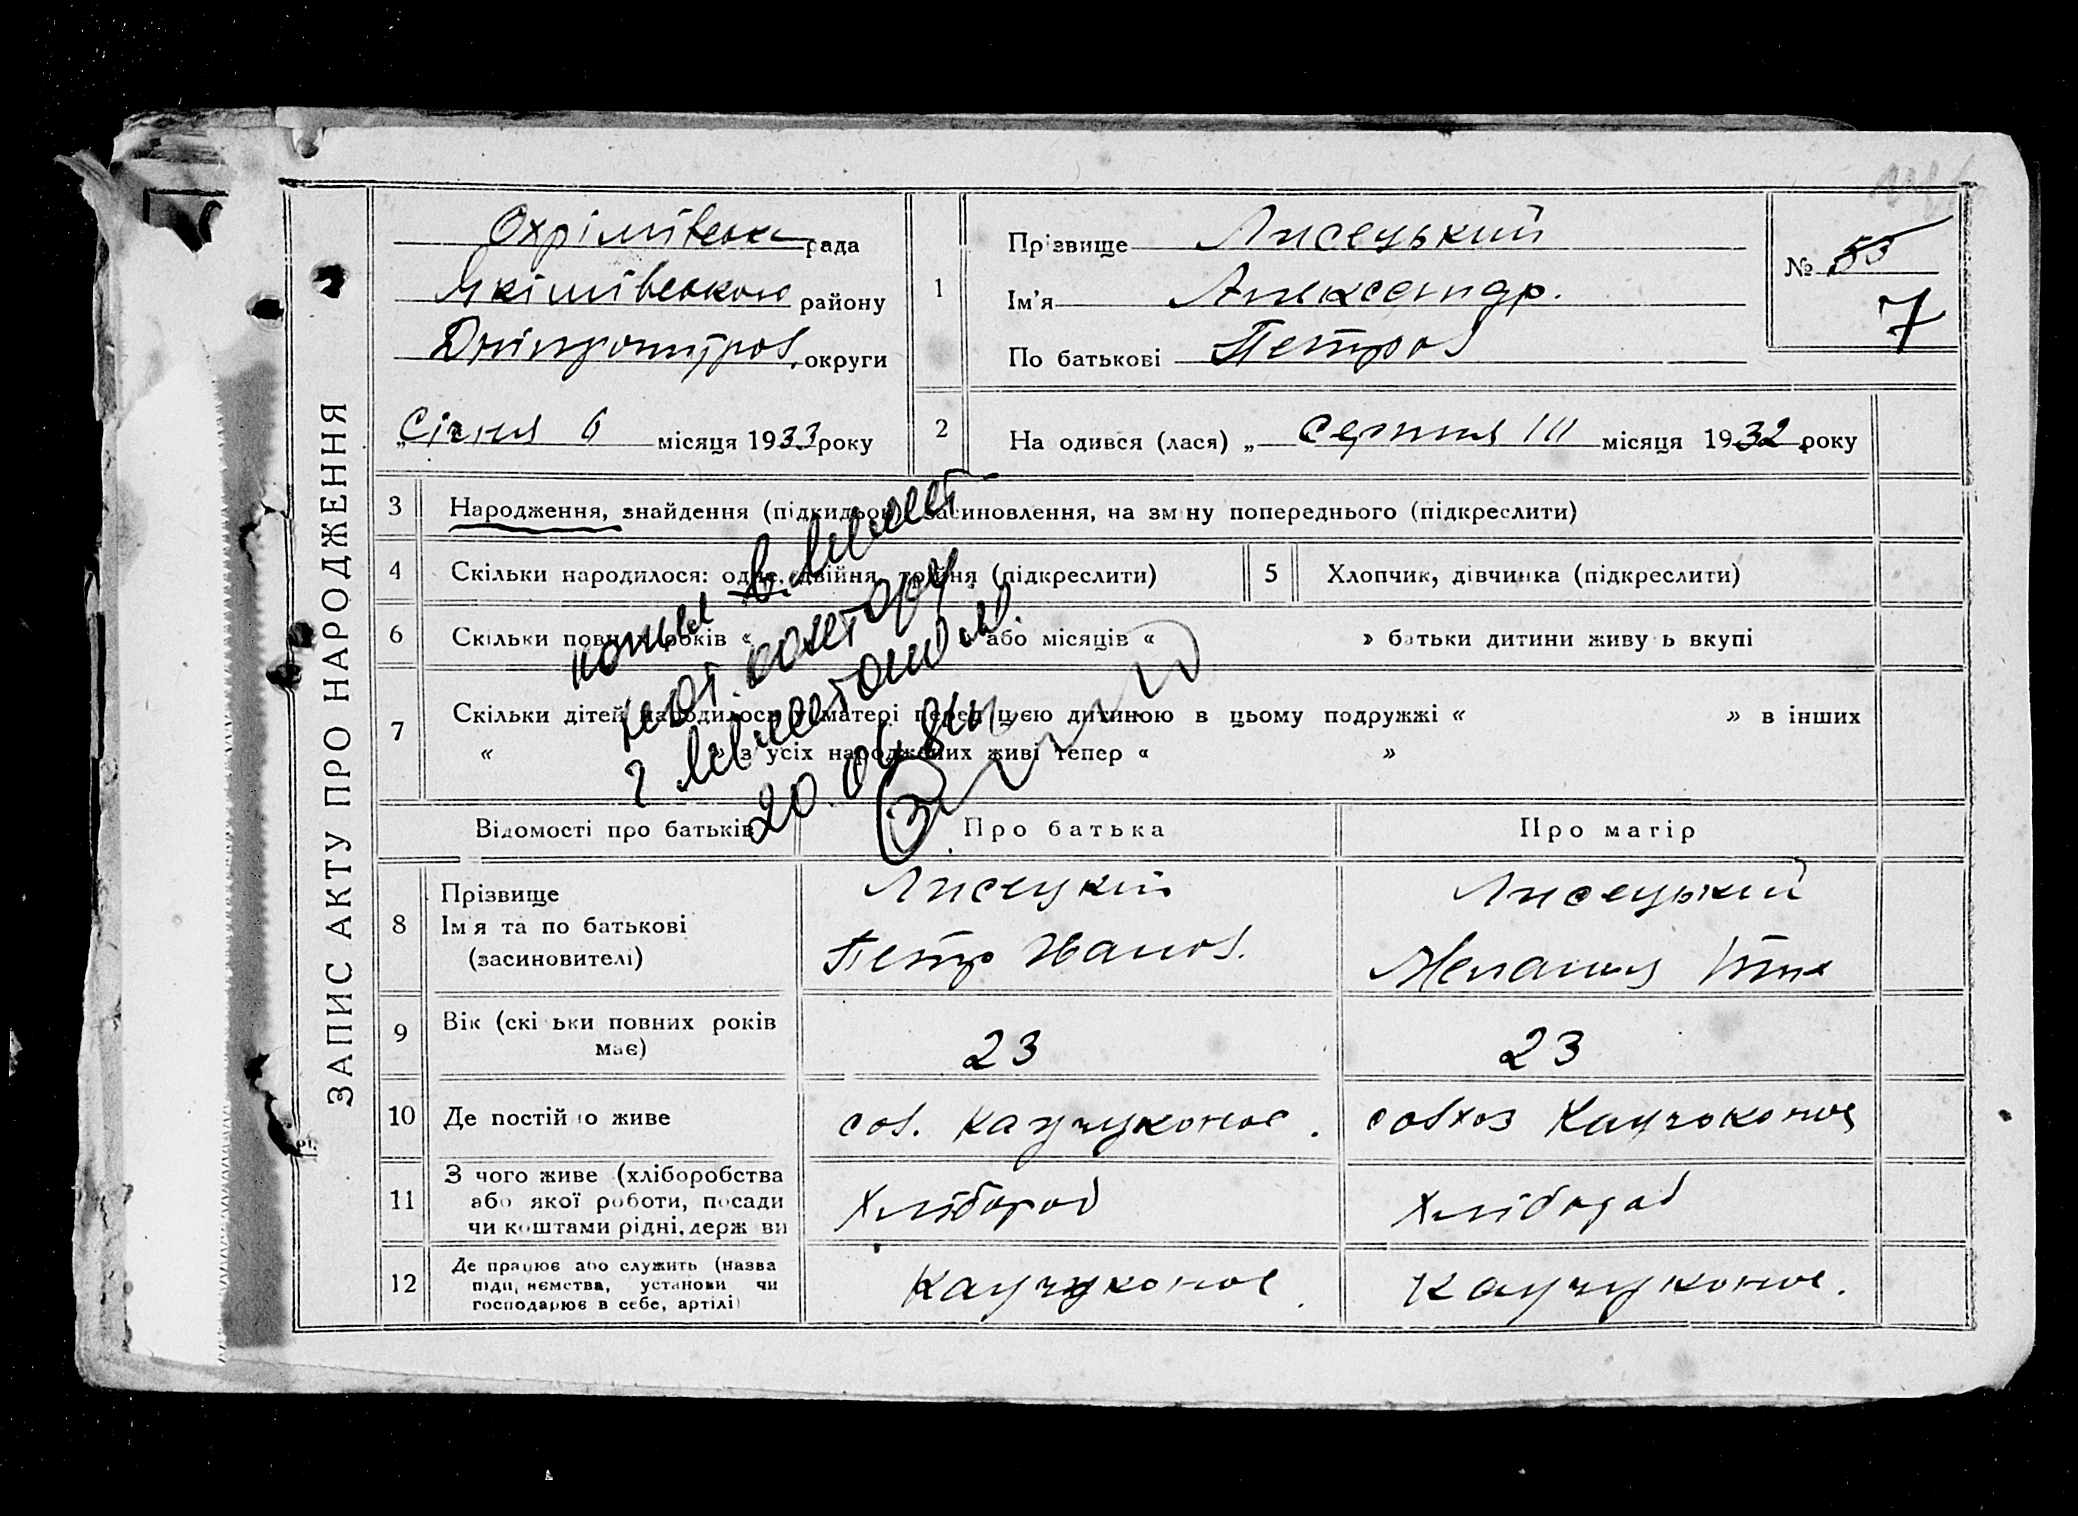 ЗАПИС АКТУ ПРО НАРОДЖЕННЯ
Охрімівська рада
Якімівського району
Дніпропетров. округи
„Січня 6 місяця 1933 року
1
Прізвище Лисецький
Ім'я Александр.
По батькові Петров
№ 55
7
2 На одився (лася) „ Серпня місяця 1932 року
3 Народження, знайдення (підкидьок) засиновлення, на зміну попереднього (підкреслити)
4 Скільки народилося: одне, двійня, трійня (підкреслити)
5 Хлопчик, дівчинка (підкреслити)
6 Скільки повних років « » або місяців « » батьки дитини живу ь вкупі
7 Скільки дітей народилося у матері перед цією дитиною в цьому подружжі « » в інших
« » з усіх народжених живі тепер « »
20.04.84
Відомості про батьків
Про батька
Про матір
8 Прізвище
Ім я та по батькові
(засиновителі)
Лисецкий
Петр Иванов.
Лисецький
Мелания
9 Вік (скі ьки повних років
має)
23
23
10 Де постій о живе
сов. Каучуконос.
совхоз Каучоконос
11 З чого живе (хліборобства
або якої роботи, посади
чи коштами рідні, держ ви
Хлібороб
Хлібодаб
12 Де працює або служить (назва
підп, иємства, установи чи
господарює в себе, артілі)
Каучуконос.
Каучуконос.